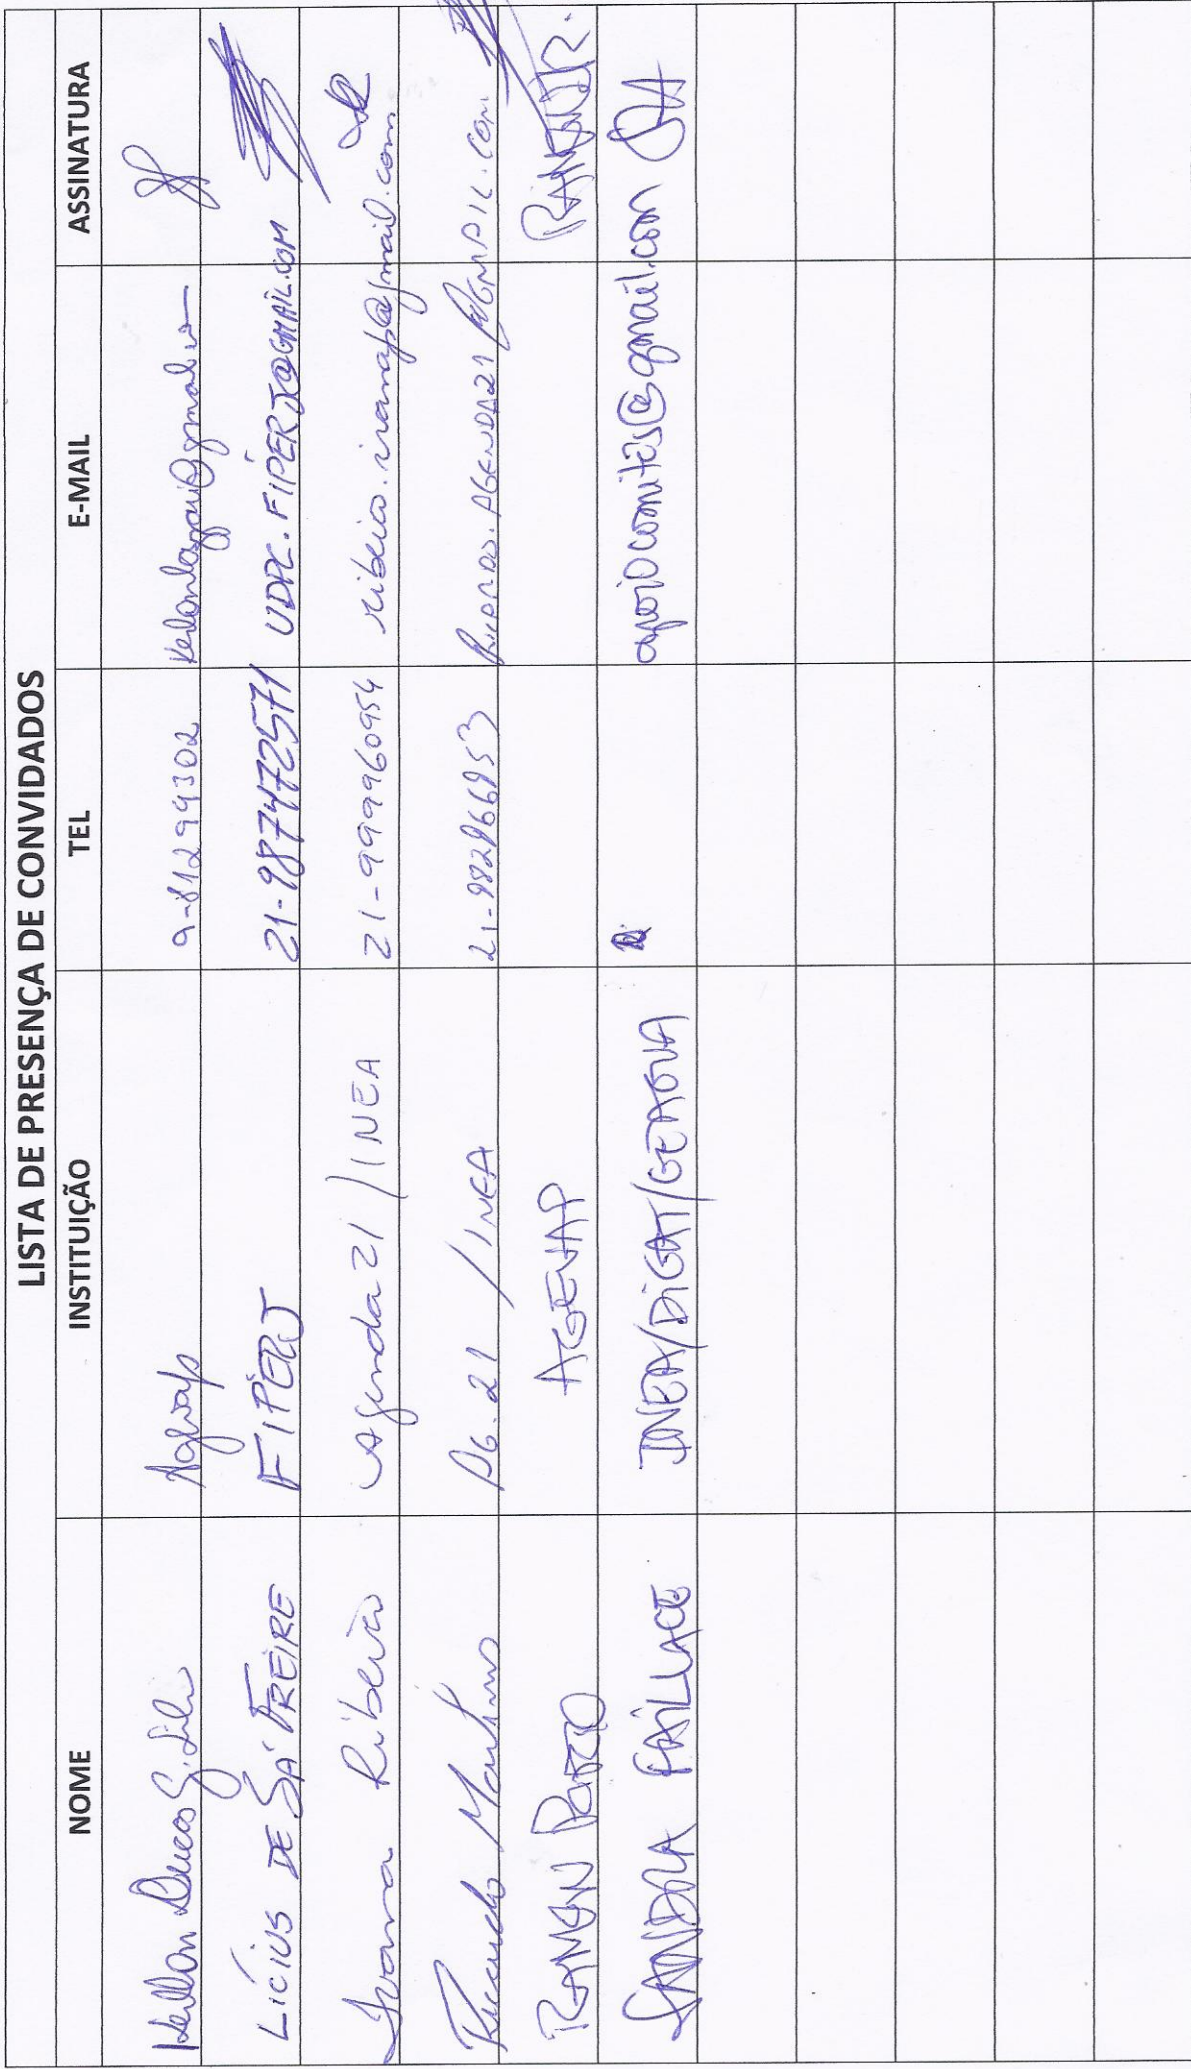 LISTA DE PRESENÇA DE CONVIDADOS
NOME INSTITUIÇÃO TEL E-MAIL ASSINATURA
Agevap 9-81299302
LICIUS DE SÁ FREIRE FIPERJ 21-987472571 UDPC.FIPERJ@GMAIL.COM
Ivana Ribeiro Agenda 21 / INEA 21-999960954 ribeiro.ivanap@gmail.com
Ricardo Martins AG. 21 / INEA RICARDO.AGENDA21@GMAIL.COM
RAMON PORTO AGEVAP RAMON JR.
SANDRA PAILLACE INEA/DIGAT/GEAGUA apoiocomites@gmail.com